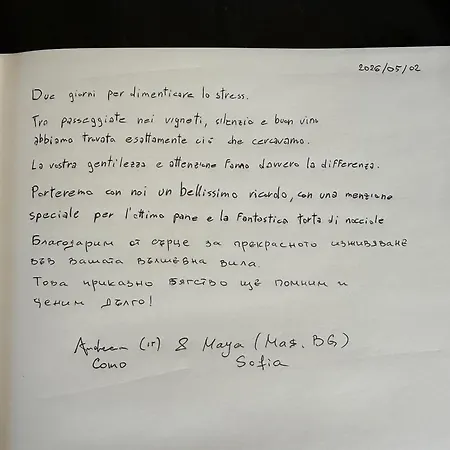 2026/05/02
Due giorni per dimenticare lo stress.
Tra passeggiate nei vigneti, silenzio e buon vino
abbiamo trovato esattamente ciò che cercavamo.
La vostra gentilezza e attenzione fanno davvero la differenza.
Porteremo con noi un bellissimo ricordo, con una menzione
speciale per l'ottimo pane e la fantastica torta di nocciole
Благодарим от сърце за прекрасното изживяване
във вашата вълшебна вила.
Това приказно бягство ще помним и
ценим дълго!
Andrea (IT) & Maya (Мая, BG)
Como Sofia